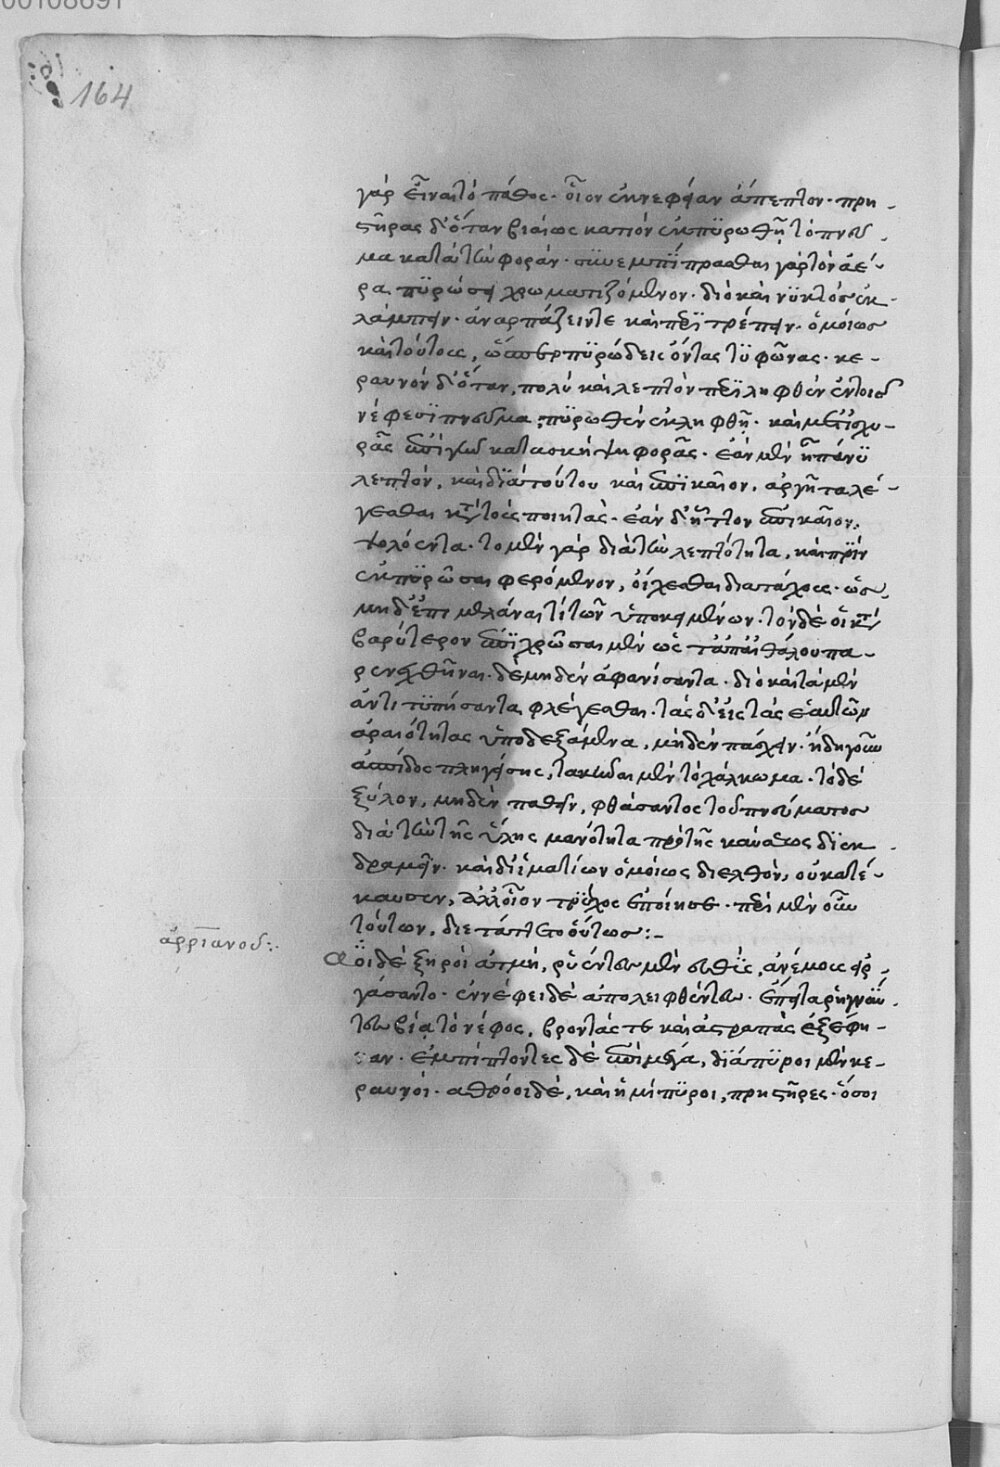 00108691
164
γὰρ εἶναι τὸ πάθος· οἷον ἐκνεφίαν ἄπεπτον· πρη-
στῆρας δ' ὅταν βιαίως κατιὸν ἐκπυρωθῇ τὸ πνεῦ-
μα κατὰ τὴν φοράν· συνεμπίπρασθαι γὰρ τὸν ἀέ-
ρα πυρώσει χρωματιζόμενον· διὸ καὶ νυκτὸς ἐκ-
λάμπειν· ἀναρπάζειν τε καὶ περιτρέπειν· ὁμοίως
καὶ τούτοις, ὥσπερ πυρώδεις ὄντας τυφῶνας· κε-
ραυνὸν δ' ὅταν, πολὺ καὶ λεπτὸν περιληφθὲν ἐντὸς
νέφεσι πνεῦμα, πυρωθὲν ἐκληφθῇ· καὶ μετ' ἰσχυ-
ρᾶς ἐπὶ γῆν κατασκήψῃ φορᾶς· ἐὰν μὲν ᾖ πάνυ
λεπτόν, καὶ διὰ τούτου καὶ ἐπικαῖον, ἀργῆτα λέ-
γεσθαι κατὰ τοὺς ποιητάς· ἐὰν δ' ἧττον ἐπικαῖον,
ψολόεντα· τὸ μὲν γὰρ διὰ τὴν λεπτότητα, καὶ πρὶν
ἐκπυρῶσαι φερόμενον, οἴχεσθαι διὰ τάχους· ὡς
μηδ' ἐπιμελάναι τί τῶν ὑποκειμένων· τὸν δέ οἱ κατὰ
βαρύτερον ἐπιχρῶσαι μὲν ὡς τὰ ἀπ' αἰθάλου πα-
ρενεχθῆναι· δὲ μηδὲν ἀφανίσαντα· διὸ καὶ τὰ μὲν
ἀντιτυπήσαντα φλέγεσθαι· τὰς δ' εἰς τὰς ἑαυτῶν
ἀραιότητας ὑποδεξάμενα, μηδὲν πάσχειν· ἤδη γοῦν
ἀσπίδος πληγείσης, τακῆναι μὲν τὸ χάλκωμα· τὸ δὲ
ξύλον, μηδὲν παθεῖν, φθάσαντος τοῦ πνεύματος
διὰ τὴν τῆς ὕλης μανότητα πρὸ τῆς καύσεως διεκ-
δραμεῖν· καὶ δι' ἱματίων ὁμοίως διελθόν, οὐ κατέ-
καυσεν, ἀλλ' οἷον τρύχος ἐποίησε· περὶ μὲν οὖν
τούτων, διετάττετο οὕτως:-
ἀρριανοῦ:-
οἱ δὲ ξηροὶ ἀτμοί, ῥυέντες μὲν εὐθεῖς, ἀνέμους εἰρ-
γάσαντο· ἐν νέφει δὲ ἀπολειφθέντες· ἔπειτα ῥηγνύν-
τες βίᾳ τὸ νέφος, βροντάς τε καὶ ἀστραπὰς ἐξέφη-
ναν· ἐμπίπτοντες δὲ ἐπὶ μέγα, διάπυροι μὲν κε-
ραυνοί· ἀθρόοι δέ, καὶ ἡμίπυροι, πρηστῆρες· ὅσοι